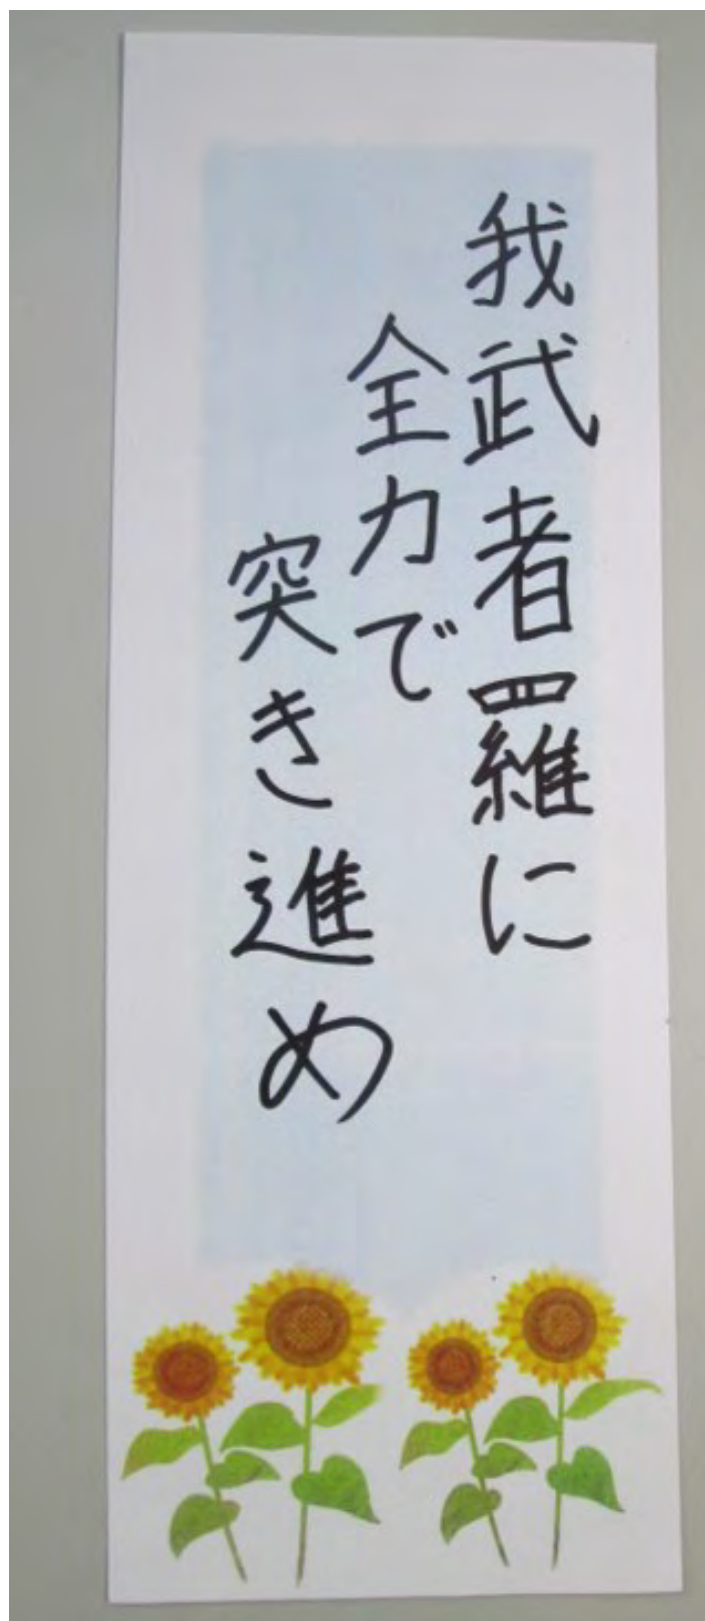 我武者羅に
全力で
突き進め